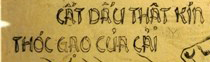 CẤT DẤU THẬT KÍN
THÓC GẠO CỦA CẢI